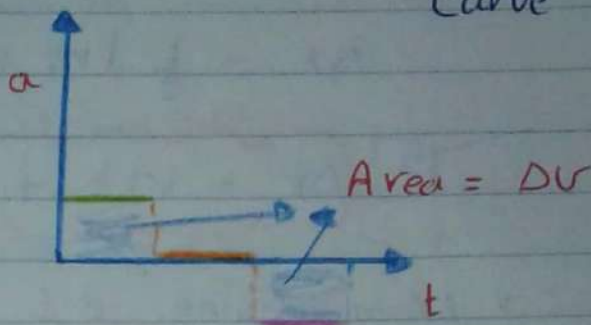 Curve
a
Area = DU
t